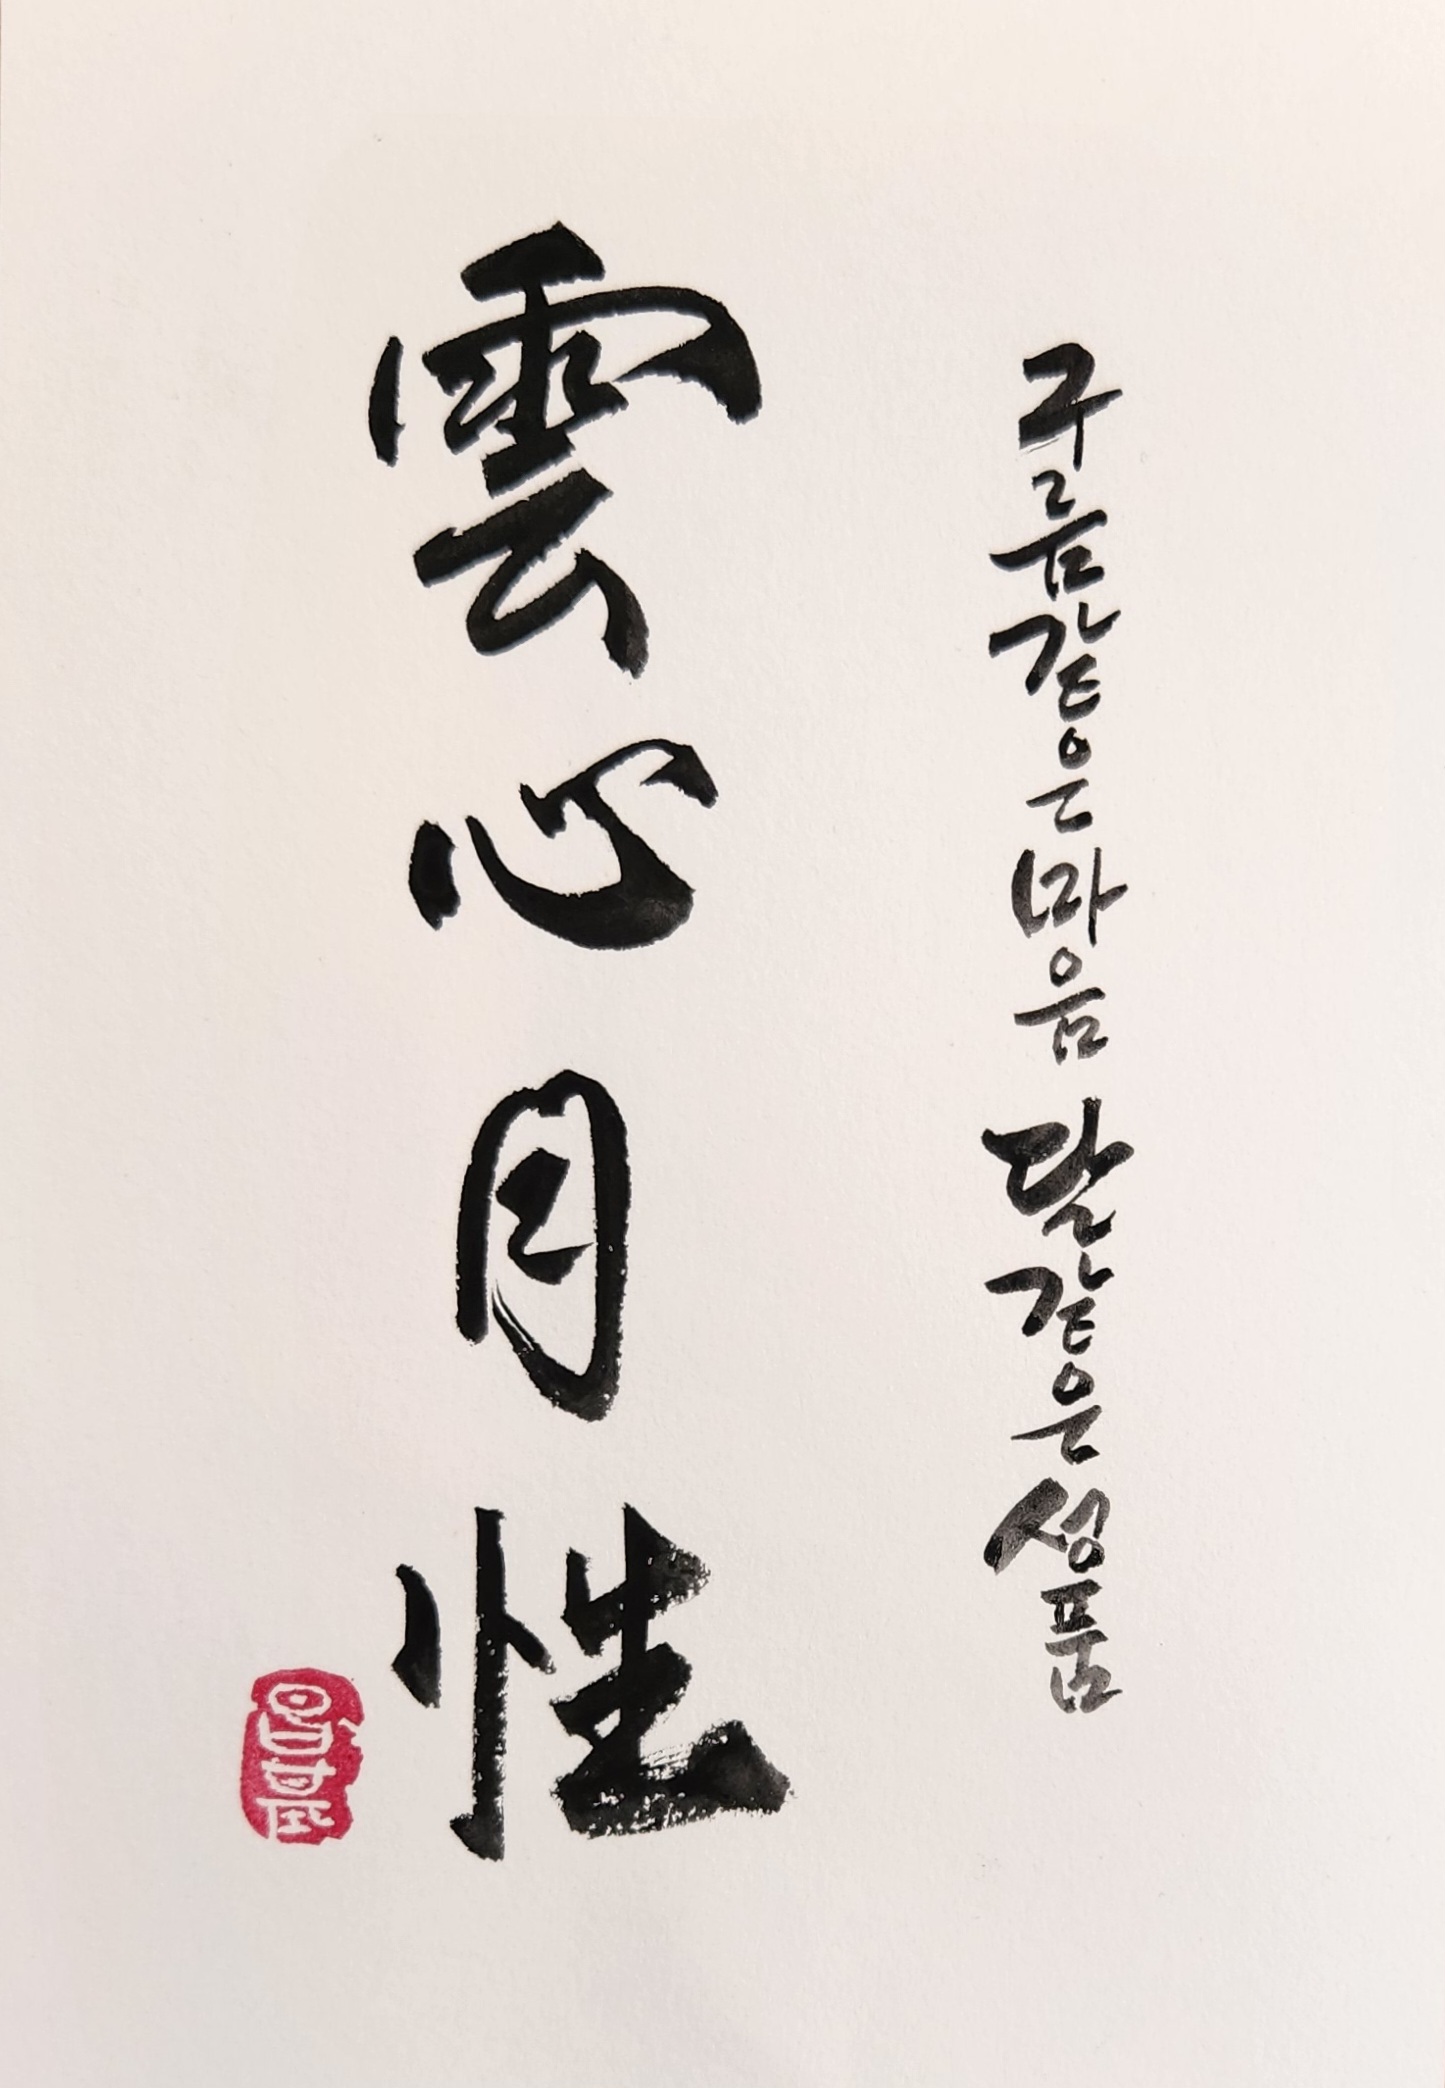 구름같은 마음 달같은 성품
雲心月性